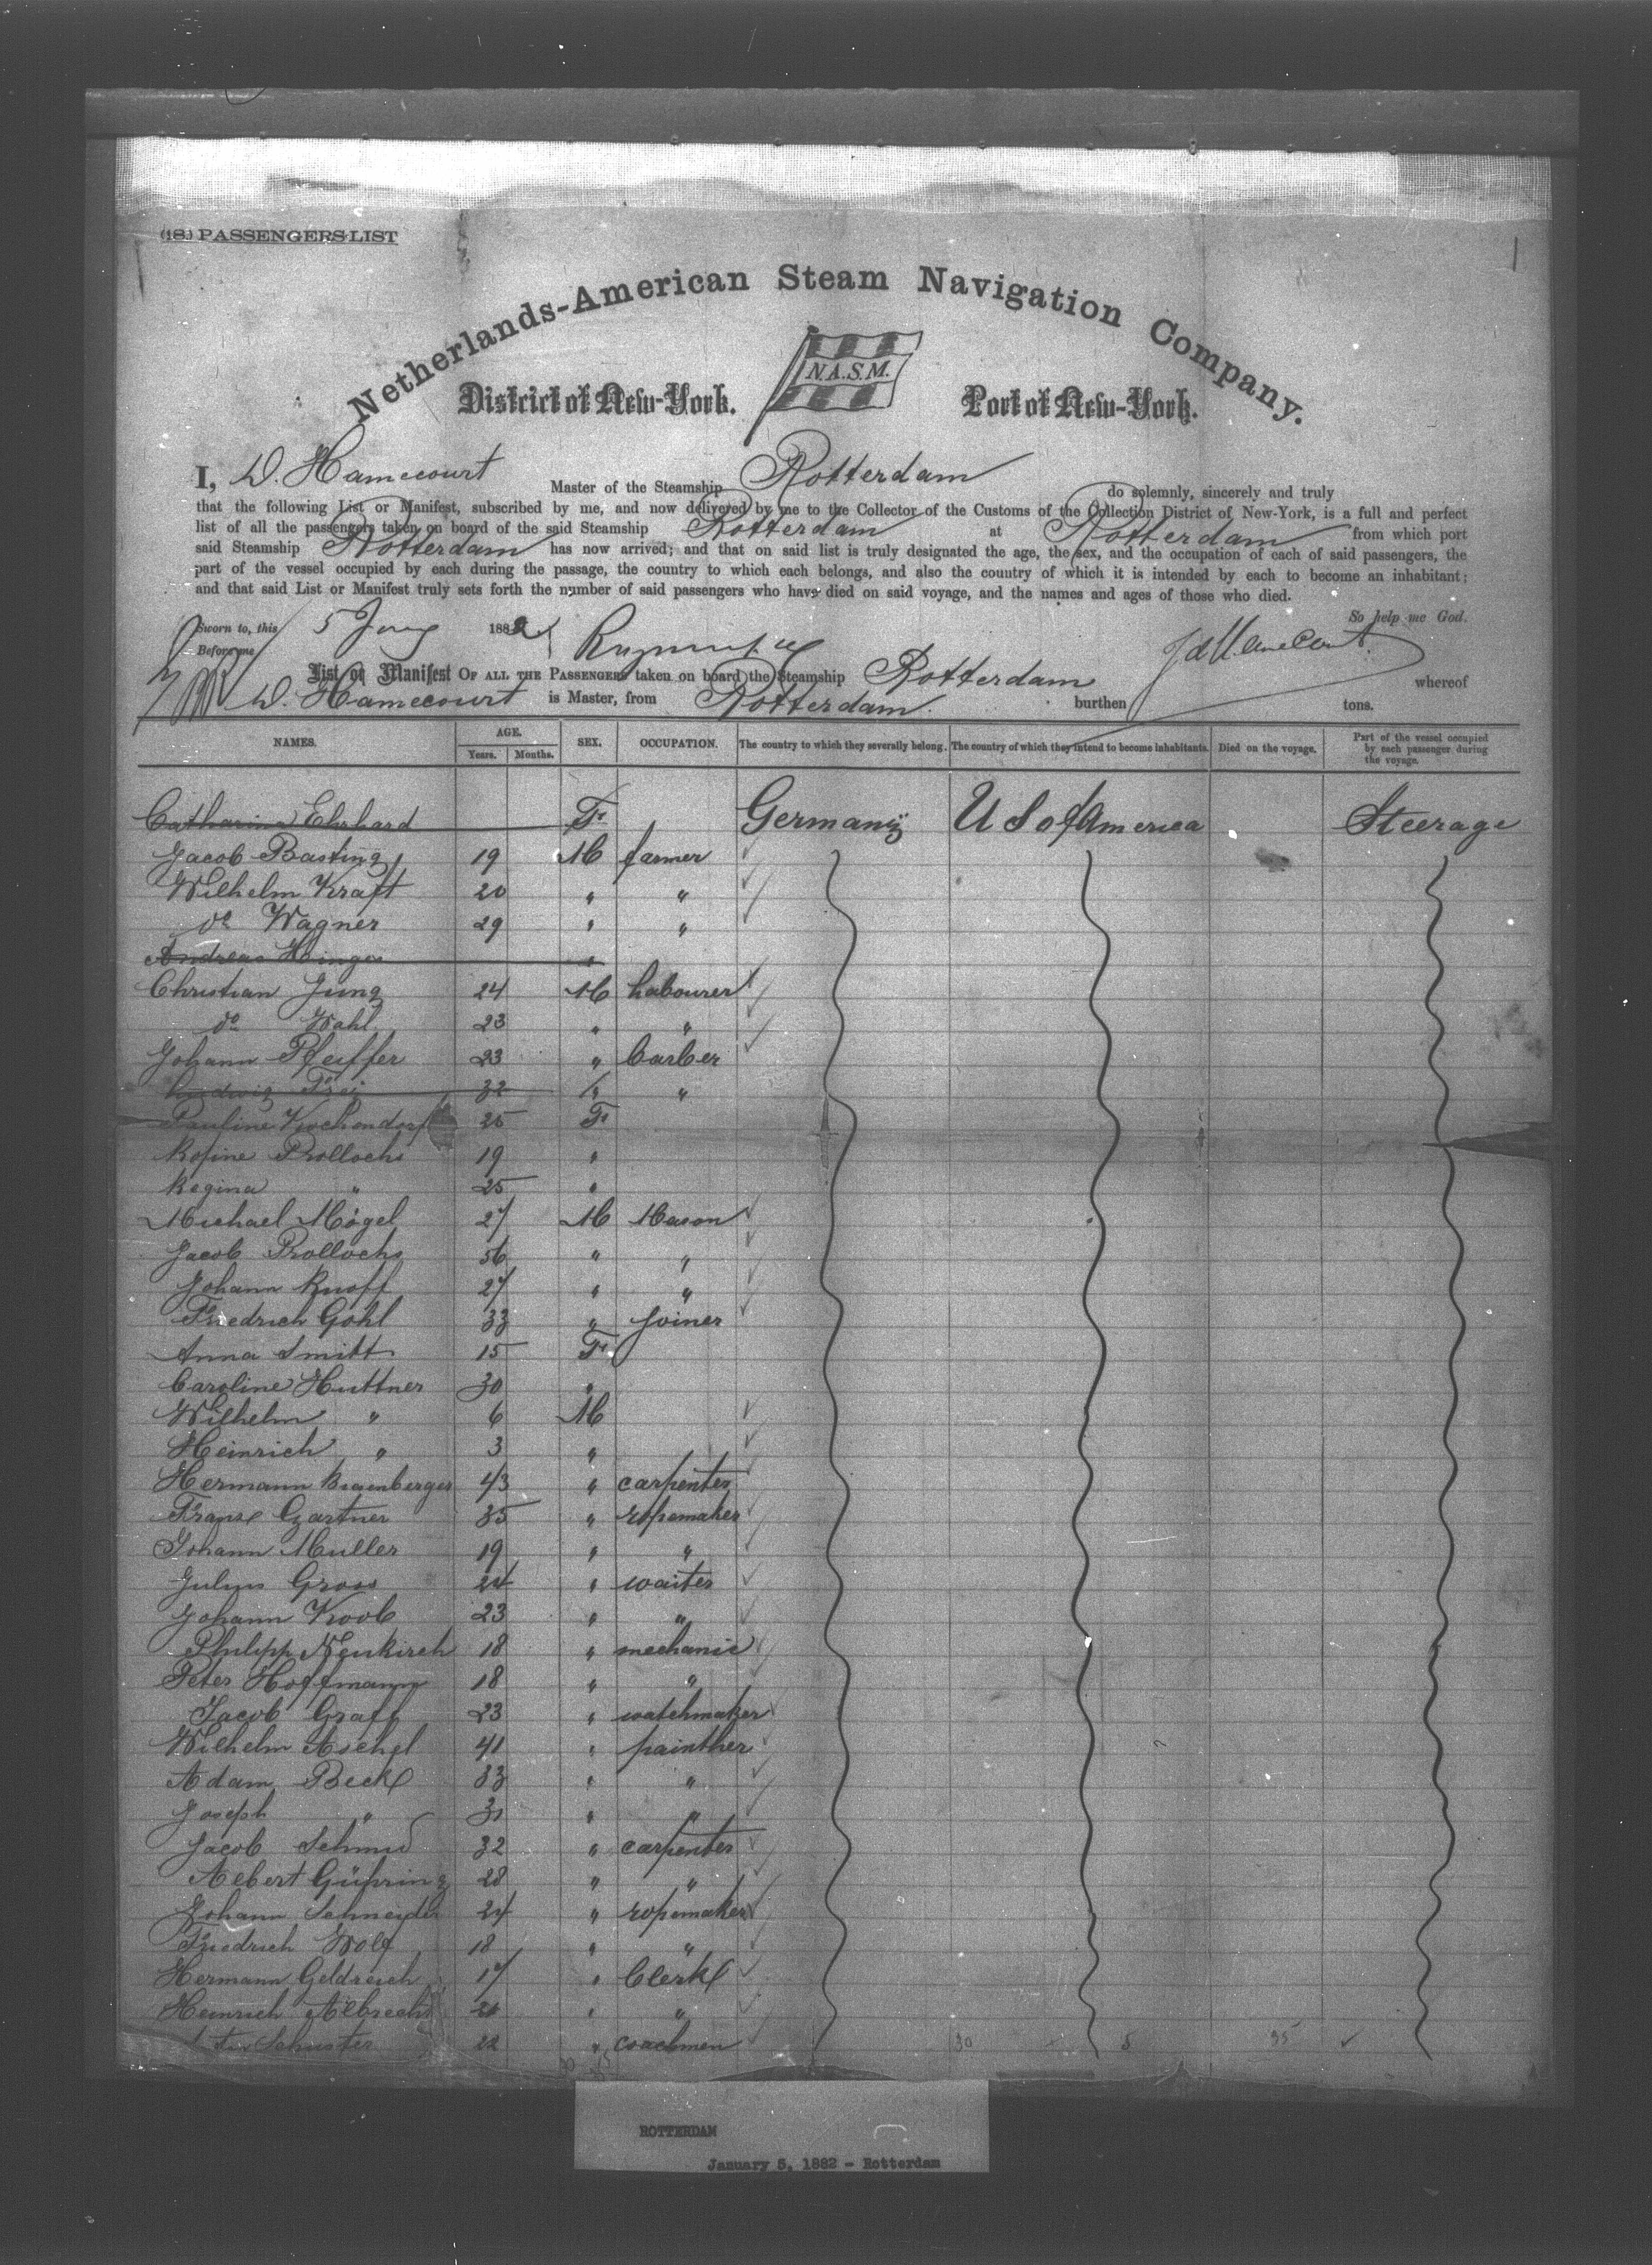 (18.) PASSENGERS LIST
Netherlands-American Steam Navigation Company.
N.A.S.M.
District of New-York. Port of New-York.
I, D. Hamecourt Master of the Steamship Rotterdam do solemnly, sincerely and truly
that the following List or Manifest, subscribed by me, and now delivered by me to the Collector of the Customs of the Collection District of New-York, is a full and perfect
list of all the passengers taken on board of the said Steamship Rotterdam at Rotterdam from which port
said Steamship Rotterdam has now arrived; and that on said list is truly designated the age, the sex, and the occupation of each of said passengers, the
part of the vessel occupied by each during the passage, the country to which each belongs, and also the country of which it is intended by each to become an inhabitant;
and that said List or Manifest truly sets forth the number of said passengers who have died on said voyage, and the names and ages of those who died.
So help me God.
Sworn to, this 5 Jany 1882
Before me
List or Manifest OF ALL THE PASSENGERS taken on board the Steamship Rotterdam whereof
D. Hamecourt is Master, from Rotterdam. burthen tons.
NAMES. AGE. Years. Months. SEX. OCCUPATION. The country to which they severally belong. The country of which they intend to become inhabitants. Died on the voyage. Part of the vessel occupied by each passenger during the voyage.
Catharina Ehrhard F. Germany U S of America Steerage
Jacob Basting 19 M farmer
Wilhelm Kraft 20 " "
do Wagner 29 " "
Andreas "
Christian Jung 24 M Labourer
do Wahl 23 " "
Johann Pfeiffer 23 " barber
Ludwig Frei 32 " "
Pauline 25 F
Rosine Prollochs 19 "
Regina " 25 "
Michael Mögel 27 M Mason
Jacob Prollochs 56 " "
Johann Knoff 27 " "
Friedrich Gohl 33 " Joiner
Anna Smitt 15 F.
Caroline Huttner 30 "
Wilhelm " 6 M
Heinrich " 3 "
Hermann 43 " carpenter
Franz Gartner 35 " ropemaker
Johann Muller 19 " "
Julius Gross 24 " waiter
Johann Koob 23 " "
Philipp Neukirch 18 " mechanic
Peter Hoffmann 18 " "
Jacob Graff 23 " watchmaker
Wilhelm Aschel 41 " painther
Adam Beck 33 " "
Joseph " 31 " "
Jacob Schmid 32 " carpenter
Albert Gühring 28 " "
Johann Schneider 24 " ropemaker
Friedrich Wolf 18 " "
Hermann Geldreich 17 " Clerk
Heinrich Albrecht " "
Schuster 22 " coachmen
30 8 35
ROTTERDAM
January 5, 1882 - Rotterdam